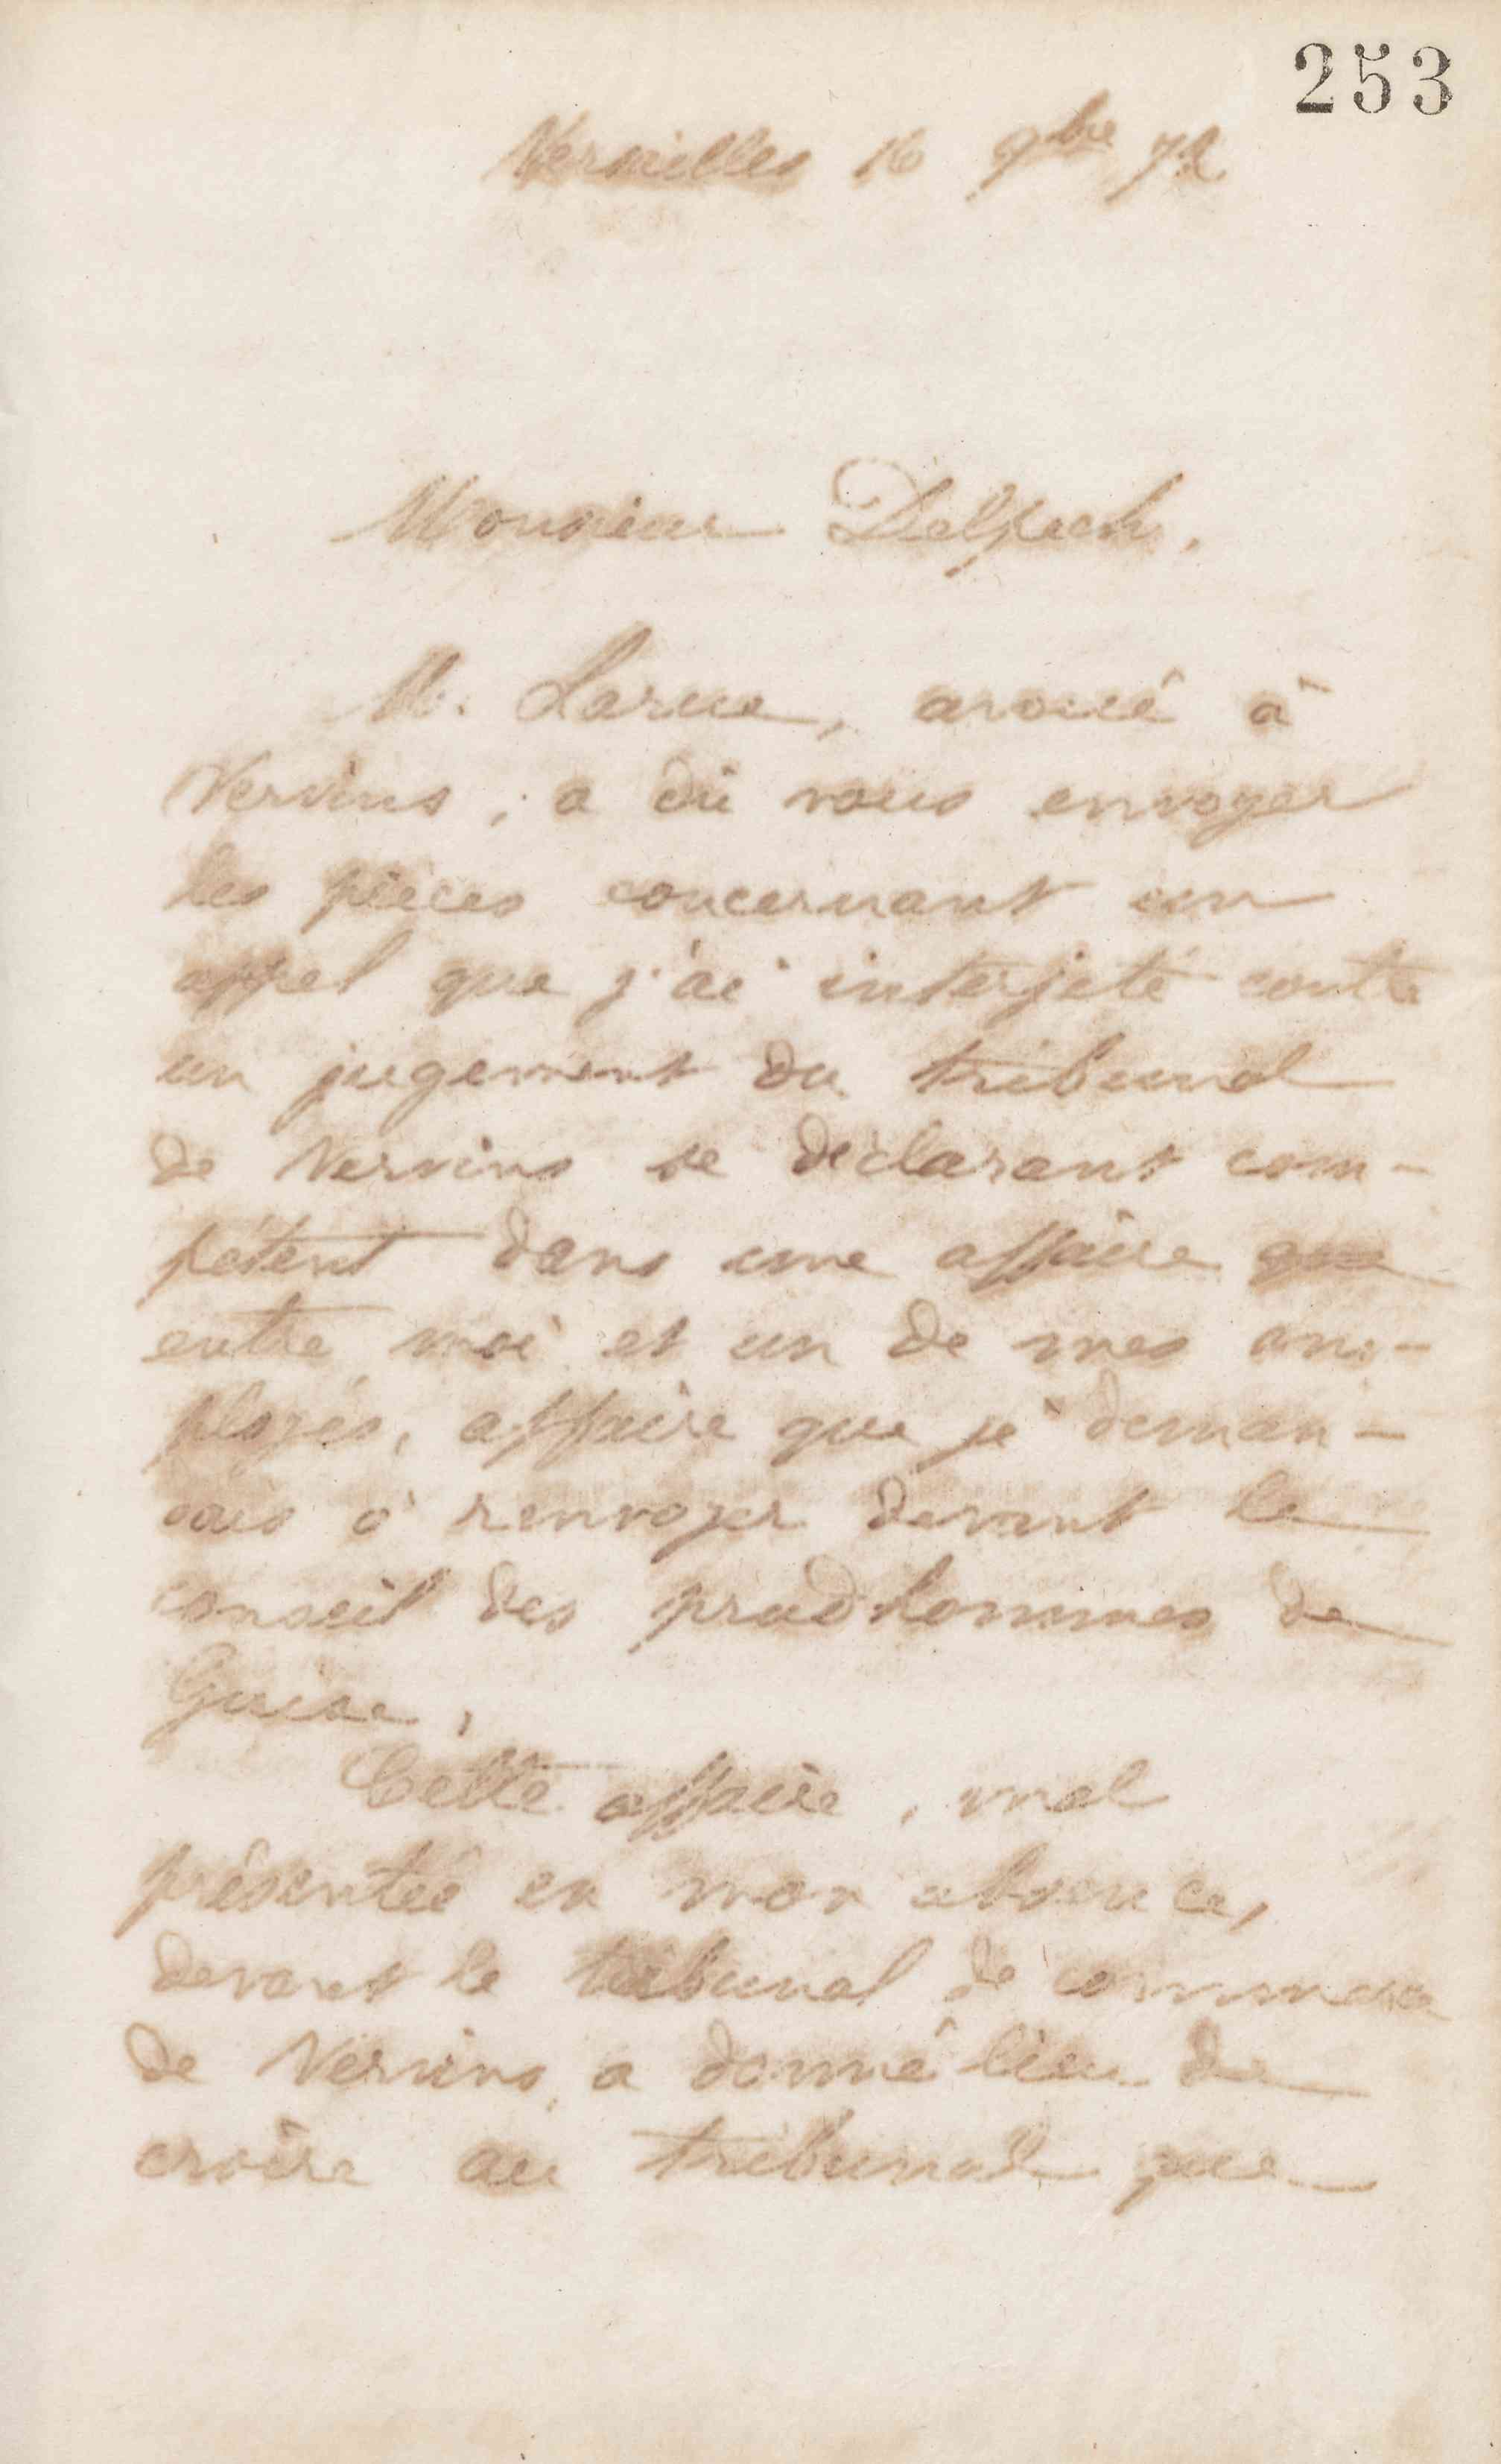 253
Versailles 16 9bre 72
Monsieur Delpech,
M. Larue, avoué à
Vervins, a dû vous envoyer
les pièces concernant un
appel que j'ai interjeté contre
un jugement du tribunal
de Vervins se déclarant com-
pétent dans une affaire que
entre moi et un de mes em-
ployés, affaire que je deman-
dais à renvoyer devant le
conseil des prudhommes de
Guise.
Cette affaire, mal
présentée en mon absence,
devant le tribunal de commerce
de Vervins, a donné lieu de
croire au tribunal que